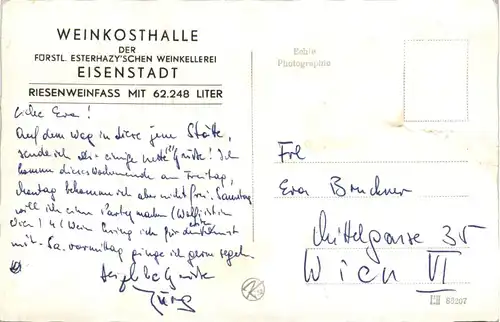 WEINKOSTHALLE
DER
FÜRSTL. ESTERHAZY'SCHEN WEINKELLEREI
EISENSTADT
RIESENWEINFASS MIT 62.248 LITER
Liebe Eva!
Auf dem Weg in diese Stätte,
sende ich dir einige nette Grüße! Ich
komme dieses Wochenende am Freitag,
Montag bekomme ich aber nicht frei. Samstag
will ich eine Party machen (Wolfi ist in
Wien!) (Wein bring ich für
mit. Sa. vormittag ginge ich gern segeln.
Jürg
Echte
Photographie
Frl
Eva Bruckner
Mittelgasse 35
Wien VI
88207